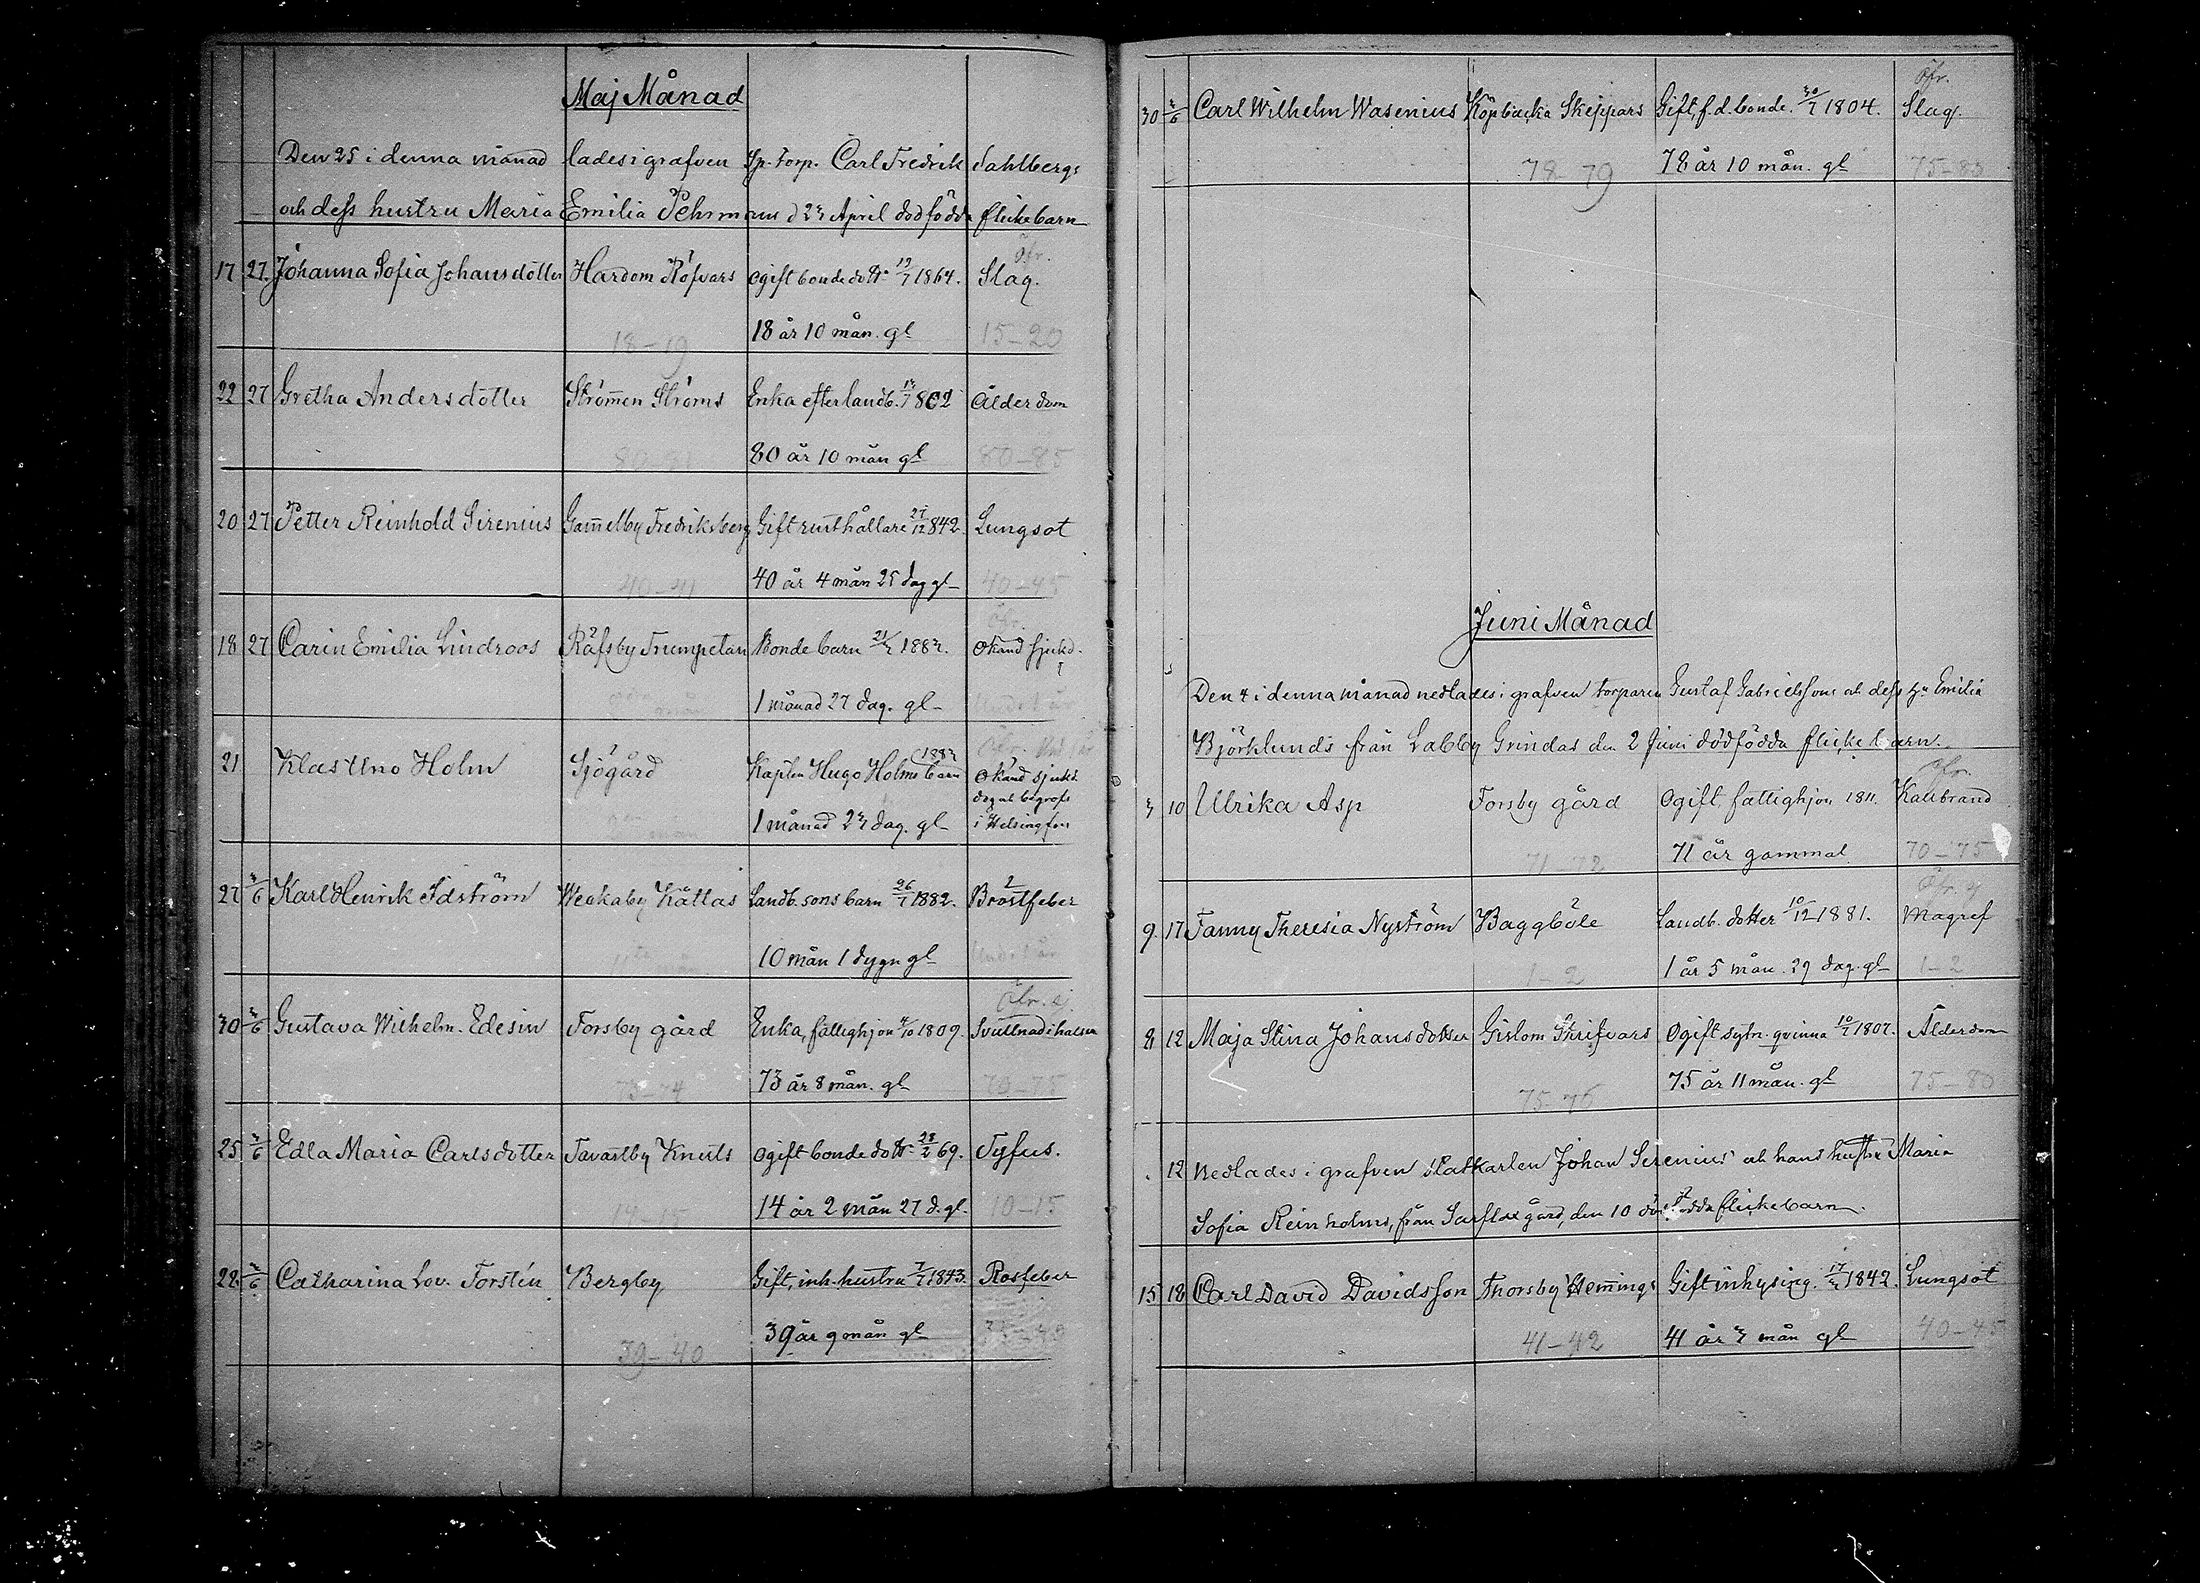 Maj Månad
Den 25 i denna månad lades i grafven Sp. torp. Carl Fredrik Dahlbergs
och dess hustru Maria Emilia Pehrmans d 23 April dödfödda flickebarn
Öfr.
17 27. Johanna Sofia Johansdotter Hardom Röfvars ogift bondedottr 19/7 1864. Slag.
18-19 18 år 10 mån. gl 15-20
22 27 Gretha Andersdotter Strömen Ströms Enka efter landb. 17/7 802 Ålderdom
80-81 80 år 10 mån gl 80-85
20 27 Petter Reinhold Sirenius Gamelby Fredriksberg Gift rusthållare 27/12 842 Lungsot
40-41 40 år 4 mån 25 dag gl 40-45
Öfr.
18 27 Carin Emilia Lindroos Räfsby Trumpetan Bonde barn 21/3 1883. Okänd sjukd.
1 månad 27 dag. gl
Öfr.
21 Klas Uno Holm Sjögård Kapten Hugo Holms barn 1883 Okänd sjukd.
dog ock begrofs
1 månad 23 dag. gl i Helsingfors
27 3/6 Karl Henrik Idström Weckaby Kättas Landb. sons barn 26/7 1882. Bröstfeber
10 mån 1 dygn gl
Öfr.
30 3/6 Gustava Wilhelm. Edesin Forsby gård Enka, fattighjon 4/10 1809. Svullnad i halsen
73-74 73 år 8 mån. gl 70-75
25 3/6 Edla Maria Carlsdotter Tavastby Knuts ogift bondedottr 28/2 69. Tyfus.
14-15 14 år 2 mån 27 d. gl. 10-15
28 3/6 Catharina Lov. Forstén Bergby Gift, inh. hustru 7/7 1843. Rosfeber
39-40 39 år 9 mån gl
Öfr.
30 3/6 Carl Wilhelm Wasenius Köpbacka Skeppars Gift, f.d. bonde. 30/7 1804. Slag.
78-79 78 år 10 mån. gl 75-80
Juni Månad
Den 4 i denna månad nedlades i grafven torparen Gustaf Gabrielssons ock dess hu Emilia
Björklunds från Labby Grindas den 2 Juni dödfödda flickebarn.
Öfr.
3 10 Ulrika Asp Forsby gård Ogift, fattighjon 1811. Kallbrand
71-72 71 år gammal 70-75
Öfr.
9. 17 Fanny Theresia Nyström Baggböle Landb. dotter 10/12 1881. Magref
1-2 1 år 5 mån. 29 dag. gl 1-2
8 12 Maja Stina Johansdotter Gislom Skrifvars Ogift sytn. qvinna 10/7 1807. Ålderdom
75-76 75 år 11 mån. gl 75-80
12 nedlades i grafven statkarlen Johan Serenius ock hans hustru Maria
Sofia Reinholms, från Sarflax gård, den 10 dödfödda flickebarn.
15 18 Carl David Davidsson Thorsby Hemings Gift inhysing. 17/3 1842. Lungsot
41-42 41 år 3 mån gl 40-45